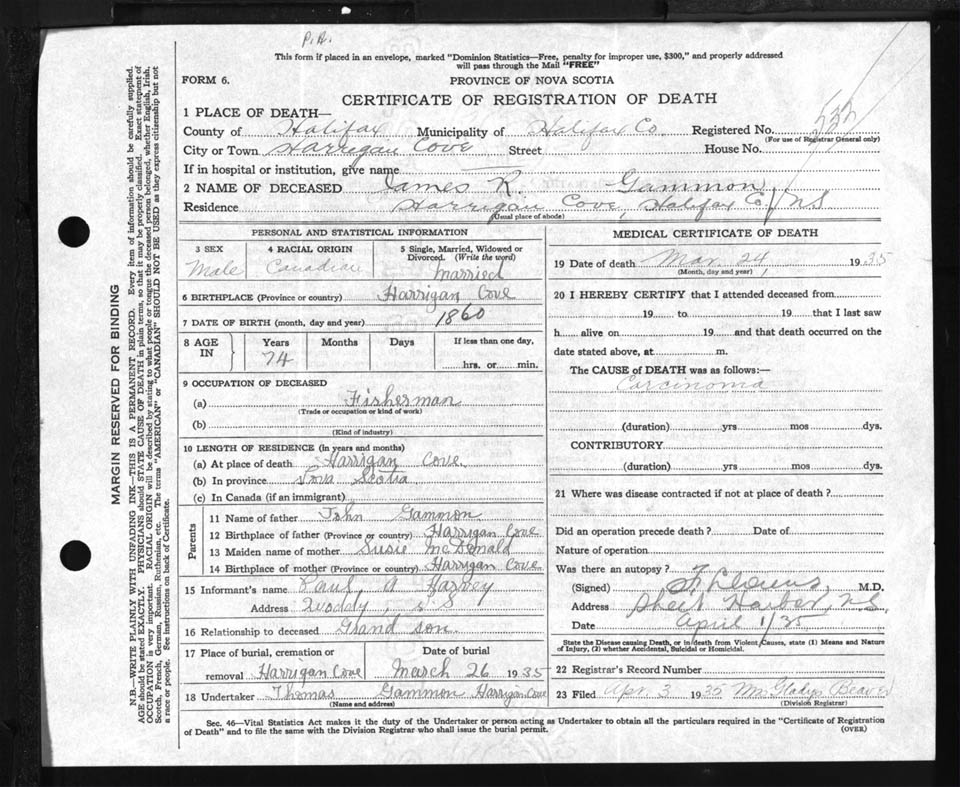 P.A.
This form if placed in an envelope, marked "Dominion Statistics—Free, penalty for improper use, $300," and properly addressed
will pass through the Mail "FREE"
FORM 6.
PROVINCE OF NOVA SCOTIA
CERTIFICATE OF REGISTRATION OF DEATH
MARGIN RESERVED FOR BINDING
N.B.—WRITE PLAINLY WITH UNFADING INK—THIS IS A PERMANENT RECORD. Every item of information should be carefully supplied.
AGE should be stated EXACTLY. PHYSICIANS should STATE CAUSE OF DEATH in plain terms, so that it may be properly classified. Exact statement of
OCCUPATION is very important. RACIAL ORIGIN will be described by stating to what people or tongue the deceased person belonged, whether English, Irish,
Scotch, French, German, Russian, Ruthenian, etc. The terms "AMERICAN" or "CANADIAN" SHOULD NOT BE USED as they express citizenship but not
a race or people. See instructions on back of Certificate.
1 PLACE OF DEATH—
County of Halifax Municipality of Halifax Co. Registered No.
(For use of Registrar General only)
City or Town Harrigan Cove Street House No.
If in hospital or institution, give name
2 NAME OF DECEASED James R. Gammon
Residence Harrigan Cove, Halifax Co., NS
(Usual place of abode)
PERSONAL AND STATISTICAL INFORMATION
3 SEX 4 RACIAL ORIGIN 5 Single, Married, Widowed or
Divorced. (Write the word)
Male Canadian Married
6 BIRTHPLACE (Province or country) Harrigan Cove
7 DATE OF BIRTH (month, day and year) 1860
8 AGE IN Years Months Days If less than one day,
74 hrs. or min.
9 OCCUPATION OF DECEASED
(a) Fisherman
(Trade or occupation or kind of work)
(b)
(Kind of industry)
10 LENGTH OF RESIDENCE (in years and months)
(a) At place of death Harrigan Cove
(b) In province Nova Scotia
(c) In Canada (if an immigrant)
Parents
11 Name of father John Gammon
12 Birthplace of father (Province or country) Harrigan Cove
13 Maiden name of mother Susie McDonald
14 Birthplace of mother (Province or country) Harrigan Cove
15 Informant's name Paul A Harvey
Address Quoddy, NS
16 Relationship to deceased Grand son
17 Place of burial, cremation or Date of burial
removal Harrigan Cove March 26 1935
18 Undertaker Thomas Gammon Harrigan Cove
(Name and address)
MEDICAL CERTIFICATE OF DEATH
19 Date of death Mar. 24, 1935
(Month, day and year)
20 I HEREBY CERTIFY that I attended deceased from
19 to 19 that I last saw
h alive on 19 and that death occurred on the
date stated above, at m.
The CAUSE of DEATH was as follows:—
Carcinoma
(duration) yrs mos dys.
CONTRIBUTORY
(duration) yrs mos dys.
21 Where was disease contracted if not at place of death?
Did an operation precede death? Date of
Nature of operation
Was there an autopsy?
(Signed) M.D.
Address Sheet Harbor, NS
Date April 1/35
State the Disease causing Death, or in death from Violent Causes, state (1) Means and Nature
of Injury, (2) whether Accidental, Suicidal or Homicidal.
22 Registrar's Record Number
23 Filed Apr. 3 1935 Mrs Gladys Beaver
(Division Registrar)
Sec. 46—Vital Statistics Act makes it the duty of the Undertaker or person acting as Undertaker to obtain all the particulars required in the "Certificate of Registration
of Death" and to file the same with the Division Registrar who shall issue the burial permit.
(OVER)